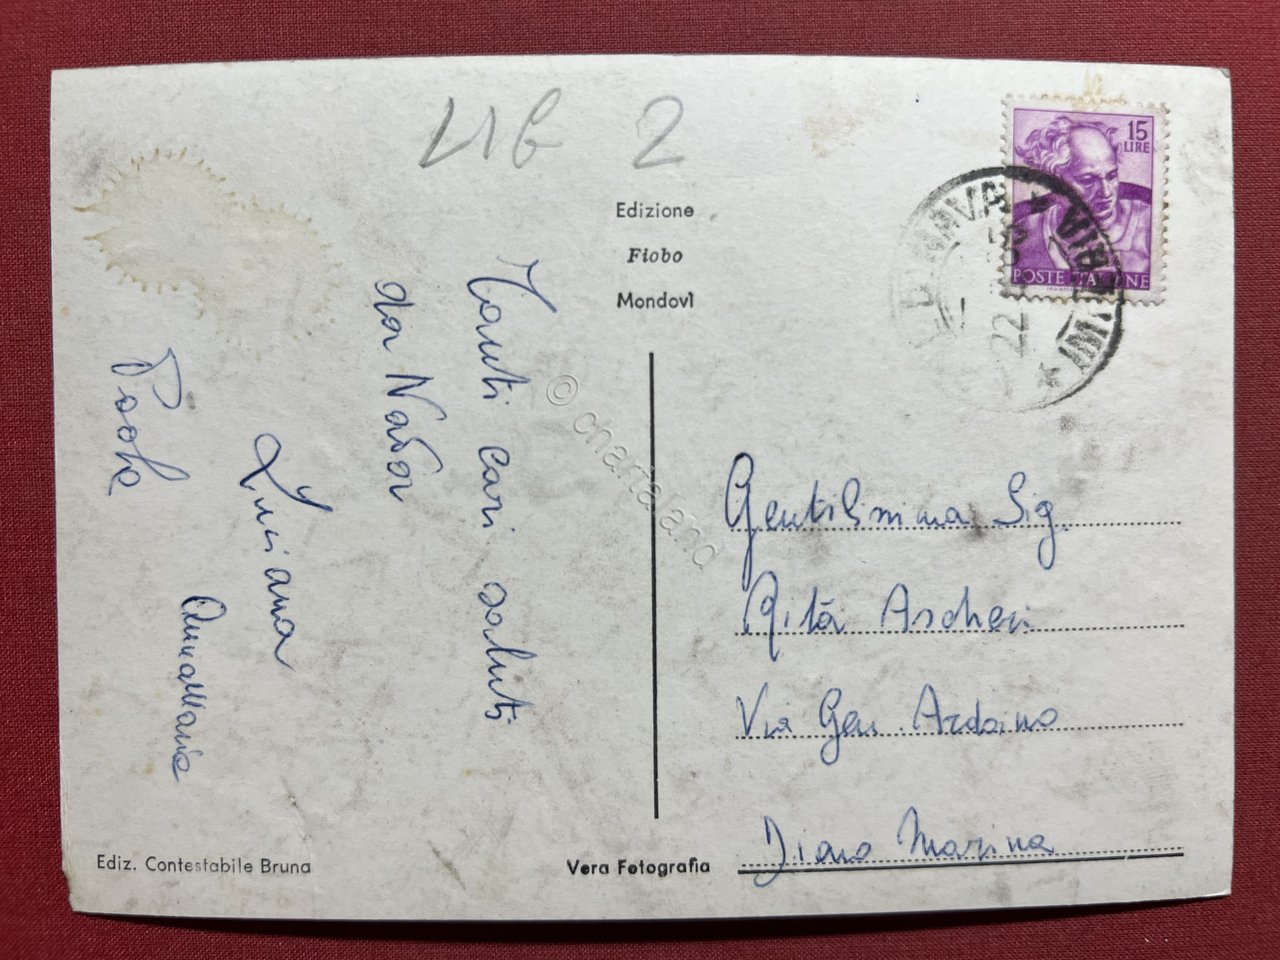 LIG 2
Edizione
Fiobo
Mondovì
15
LIRE
POSTE ITALIANE
NAVA
IMPERIA
22
Tanti cari saluti
da Nava
Luciana
Annamaria
Paola
Gentilissima Sig.
Rita Ascheri
Via Gen. Ardoino
Diano Marina
Ediz. Contestabile Bruna
Vera Fotografia
© chartaland